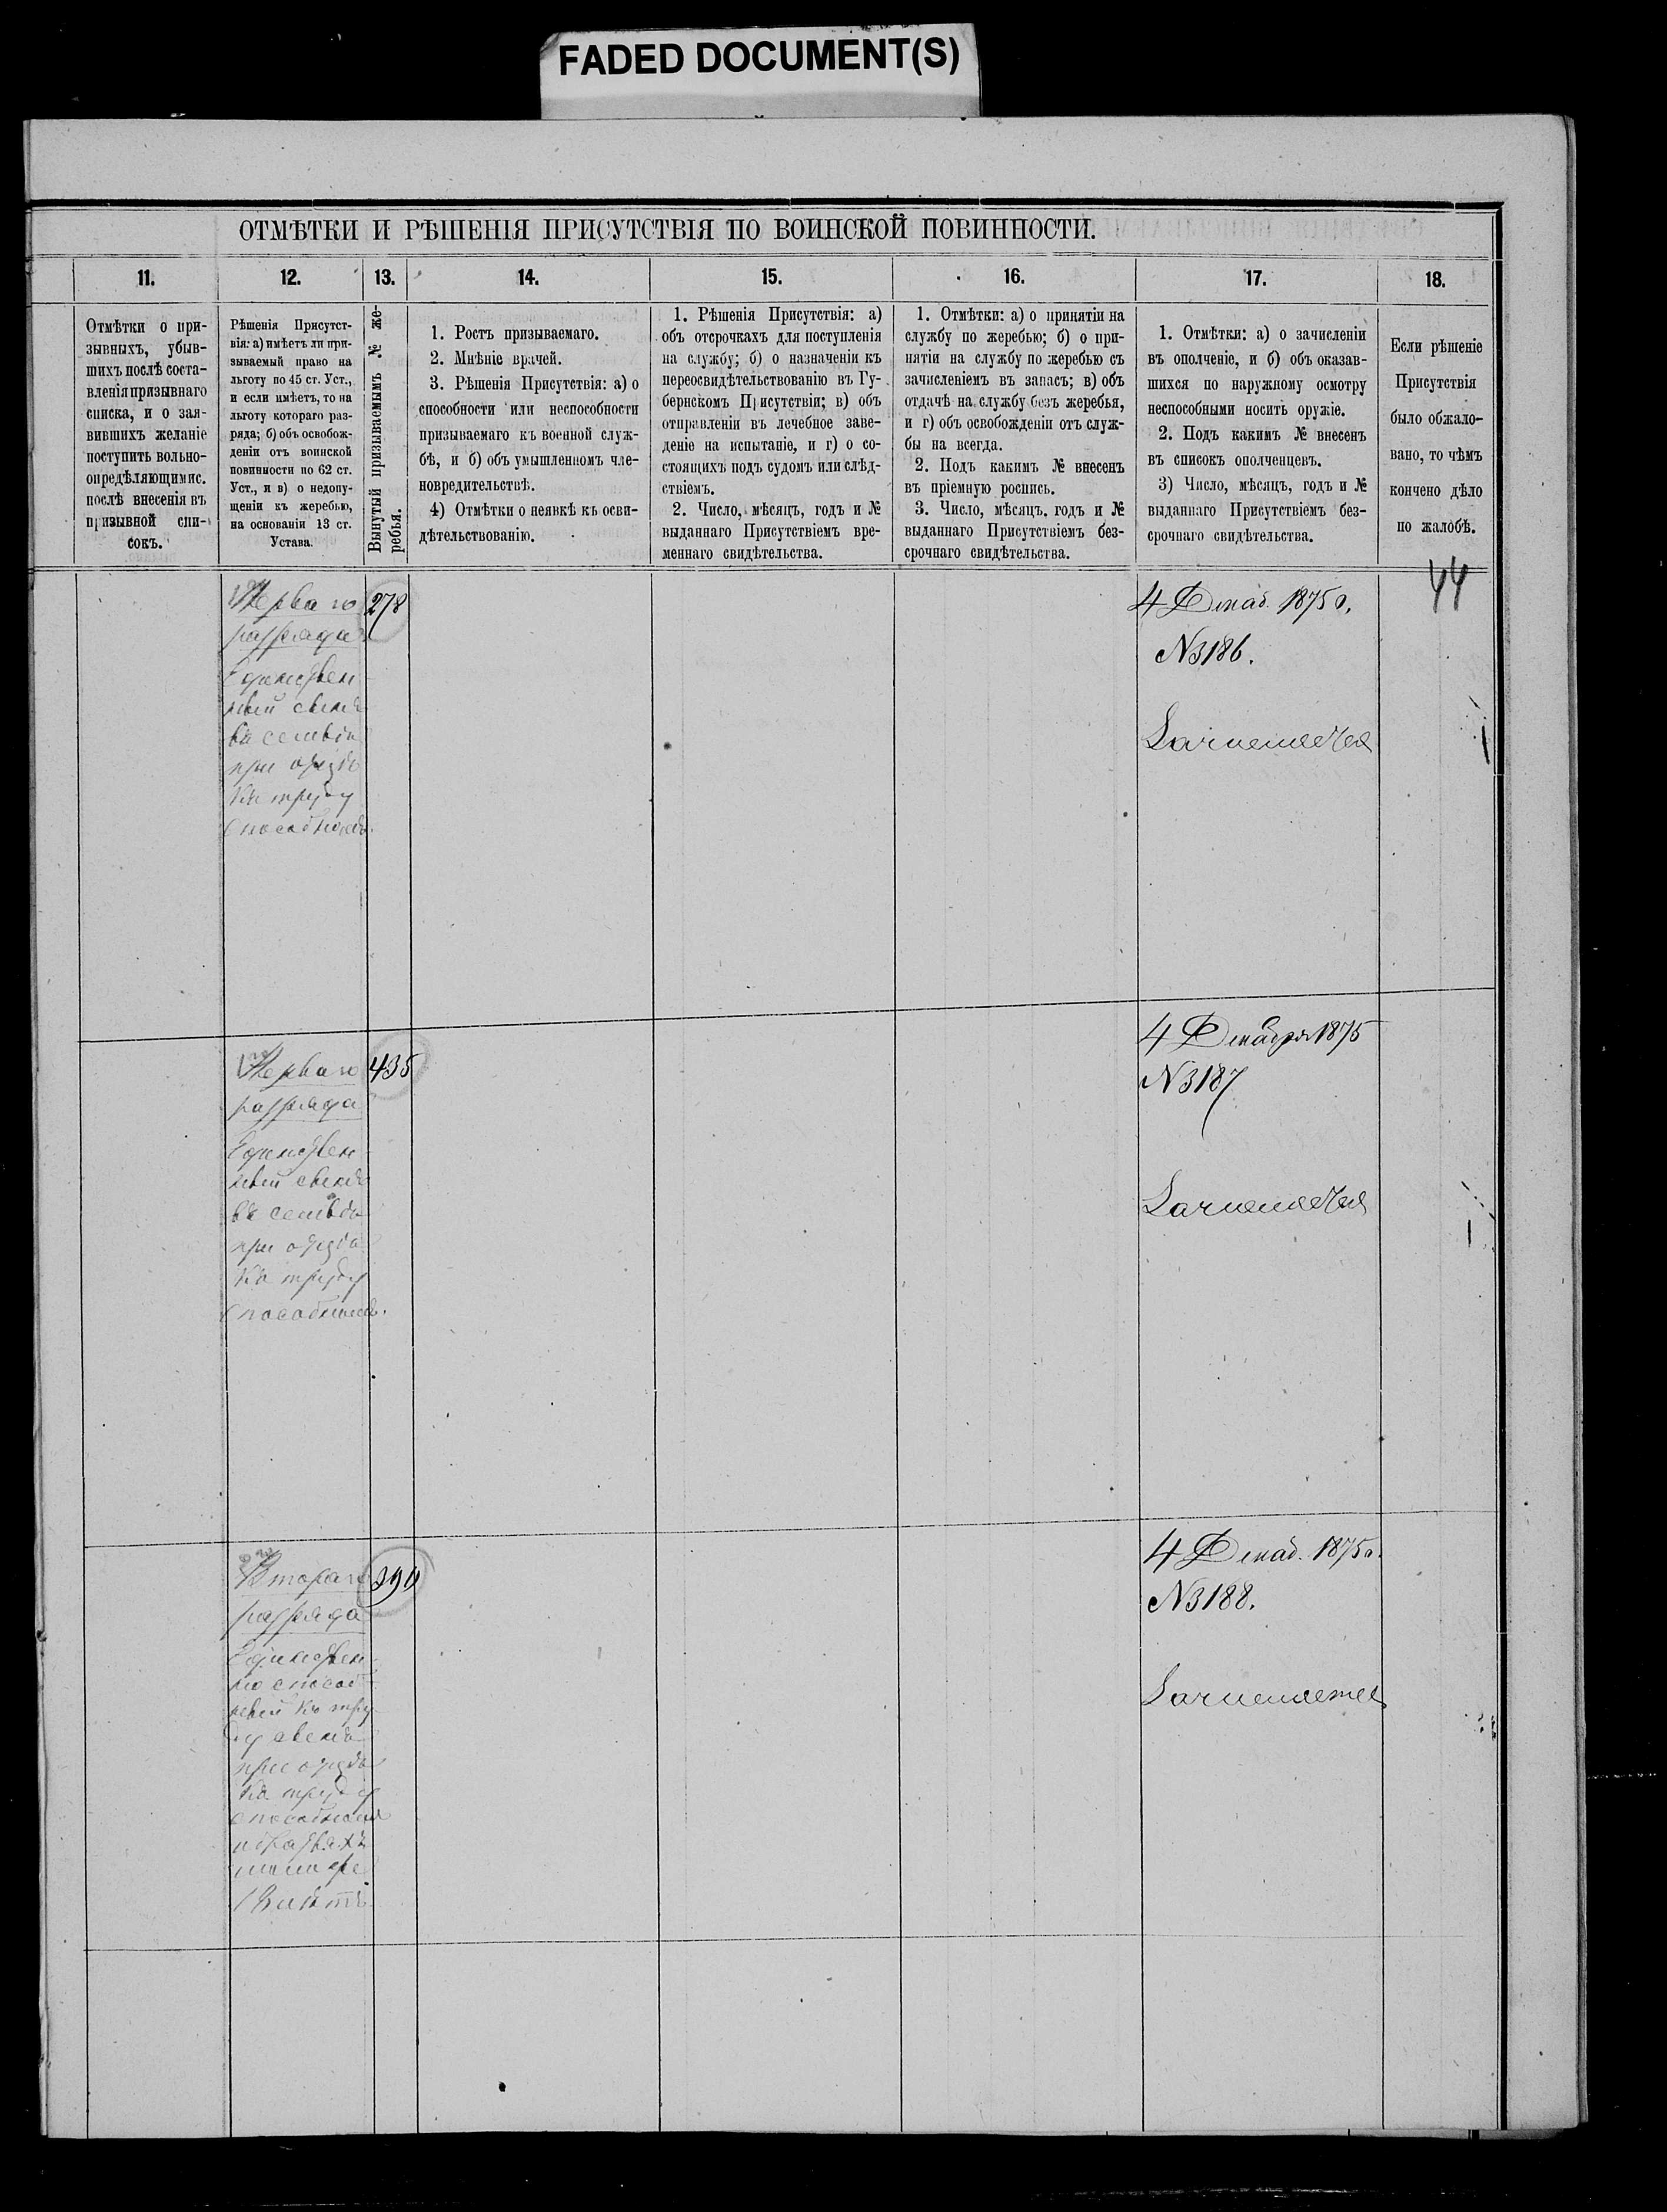 FADED DOCUMENT(S)
ОТМѢТКИ И РѢШЕНІЯ ПРИСУТСТВІЯ ПО ВОИНСКОЙ ПОВИННОСТИ.
11.
12.
13.
14.
15.
16.
17.
18.
Отмѣтки о при-
зывныхъ, убыв-
шихъ послѣ соста-
вленія призывнаго
списка, и о зая-
вившихъ желаніе
поступить вольно-
опредѣляющимис.
послѣ внесенія въ
призывной спи-
сокъ.
Рѣшенія Присутст-
вія: а) имѣетъ ли при-
зываемый право на
льготу по 45 ст. Уст.,
и если имѣетъ, то на
льготу котораго раз-
ряда; б) объ освобож-
деніи отъ воинской
повинности по 62 ст.
Уст., и в) о недопу-
щеніи къ жеребью,
на основаніи 13 ст.
Устава.
Вынутый призываемымъ № же-
ребья.
1. Ростъ призываемаго.
2. Мнѣніе врачей.
3. Рѣшенія Присутствія: а) о
способности или неспособности
призываемаго къ военной служ-
бѣ, и б) объ умышленномъ чле-
новредительствѣ.
4) Отмѣтки о неявкѣ къ осви-
дѣтельствованію.
1. Рѣшенія Присутствія: а)
объ отсрочкахъ для поступленія
на службу; б) о назначеніи къ
переосвидѣтельствованію въ Гу-
бернскомъ Присутствіи; в) объ
отправленіи въ лечебное заве-
деніе на испытаніе, и г) о со-
стоящихъ подъ судомъ или слѣд-
ствіемъ.
2. Число, мѣсяцъ, годъ и №
выданнаго Присутствіемъ вре-
меннаго свидѣтельства.
1. Отмѣтки: а) о принятіи на
службу по жеребью; б) о при-
нятіи на службу по жеребью съ
зачисленіемъ въ запасъ; в) объ
отдачѣ на службу безъ жеребья,
и г) объ освобожденіи отъ служ-
бы на всегда.
2. Подъ какимъ № внесенъ
въ пріемную роспись.
3. Число, мѣсяцъ, годъ и №
выданнаго Присутствіемъ без-
срочнаго свидѣтельства.
1. Отмѣтки: а) о зачисленіи
въ ополченіе, и б) объ оказав-
шихся по наружному осмотру
неспособными носить оружіе.
2. Подъ какимъ № внесенъ
въ списокъ ополченцевъ.
3) Число, мѣсяцъ, годъ и №
выданнаго Присутствіемъ без-
срочнаго свидѣтельства.
Если рѣшеніе
Присутствія
было обжало-
вано, то чѣмъ
кончено дѣло
по жалобѣ.
44
Перваго
разряда
Единствен
ный сынъ
въ семьѣ
при отцѣ
къ труду
способномъ.
278
4 Декаб. 1875 г.
N 3186.
Перваго
разряда
Единствен
ный сынъ
въ семьѣ
при отцѣ
къ труду
способномъ.
435
4 Декабря 1875
N 3187
Втораго
разряда
Единствен
но способ
ный къ тру
ду сынъ
при отцѣ
къ труду
способномъ
и братьяхъ
394
4 Декаб. 1875 г.
N 3188.